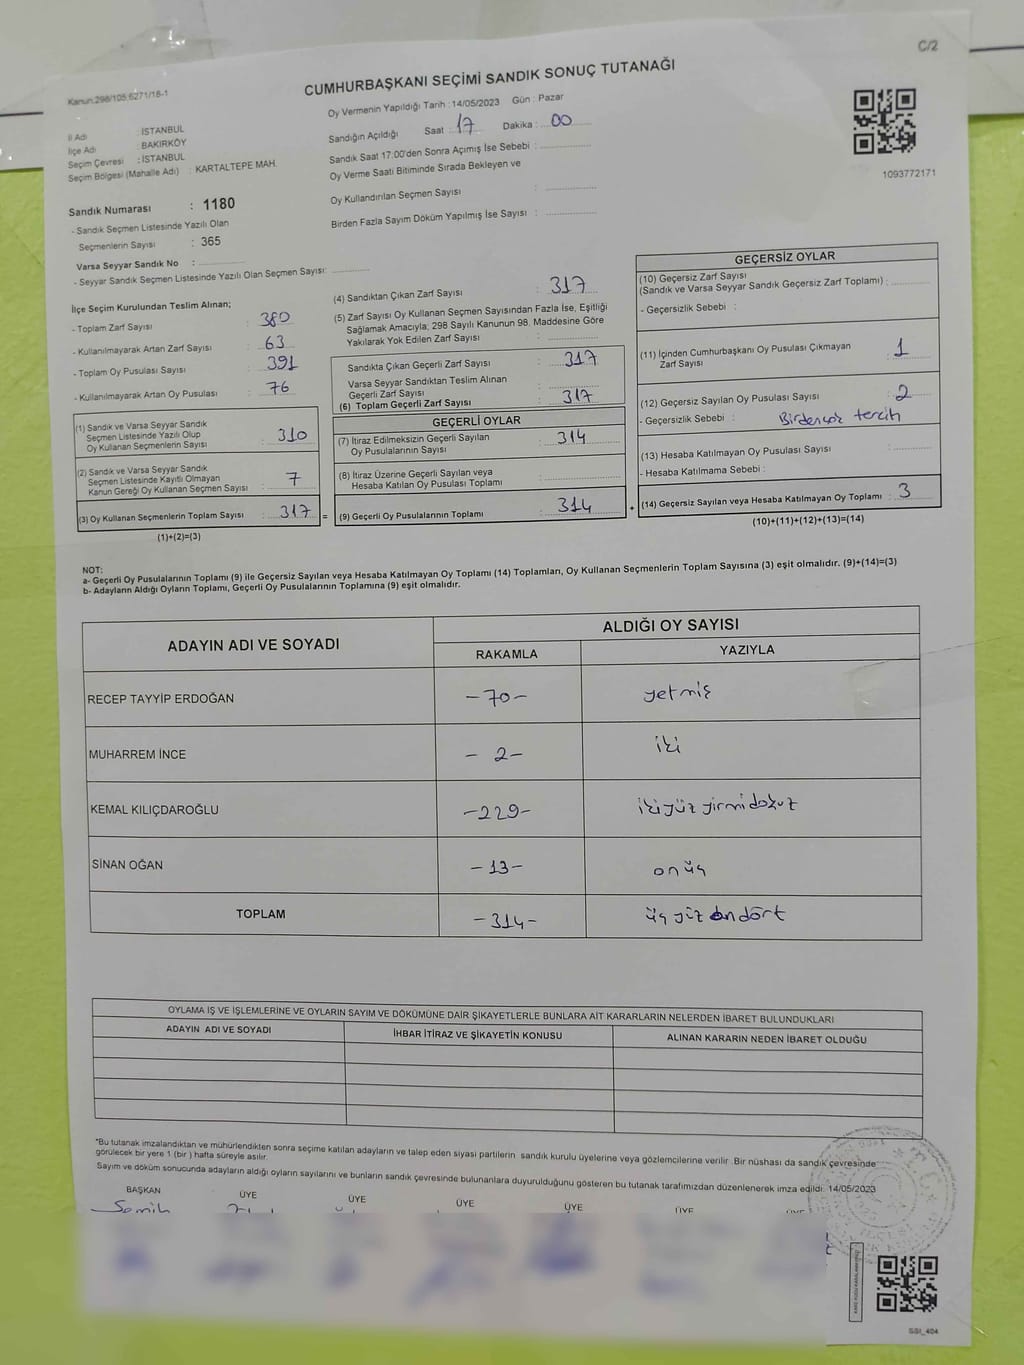 C/2
Kanun:298/105;6271/18-1
CUMHURBAŞKANI SEÇİMİ SANDIK SONUÇ TUTANAĞI
Oy Vermenin Yapıldığı Tarih : 14/05/2023 Gün : Pazar
İl Adı : İSTANBUL
İlçe Adı : BAKIRKÖY
Seçim Çevresi : İSTANBUL
Seçim Bölgesi (Mahalle Adı) : KARTALTEPE MAH.
Sandığın Açıldığı Saat : 17 Dakika : 00
Sandık Saat 17:00'den Sonra Açımış İse Sebebi :
Oy Verme Saati Bitiminde Sırada Bekleyen ve
Oy Kullandırılan Seçmen Sayısı :
Birden Fazla Sayım Döküm Yapılmış İse Sayısı :
1093772171
Sandık Numarası : 1180
- Sandık Seçmen Listesinde Yazılı Olan
Seçmenlerin Sayısı : 365
Varsa Seyyar Sandık No :
- Seyyar Sandık Seçmen Listesinde Yazılı Olan Seçmen Sayısı:
İlçe Seçim Kurulundan Teslim Alınan;
- Toplam Zarf Sayısı : 380
- Kullanılmayarak Artan Zarf Sayısı : 63
- Toplam Oy Pusulası Sayısı : 391
- Kullanılmayarak Artan Oy Pusulası : 76
(1) Sandık ve Varsa Seyyar Sandık
Seçmen Listesinde Yazılı Olup
Oy Kullanan Seçmenlerin Sayısı : 310
(2) Sandık ve Varsa Seyyar Sandık
Seçmen Listesinde Kayıtlı Olmayan
Kanun Gereği Oy Kullanan Seçmen Sayısı : 7
(3) Oy Kullanan Seçmenlerin Toplam Sayısı : 317 =
(1)+(2)=(3)
(4) Sandıktan Çıkan Zarf Sayısı : 317
(5) Zarf Sayısı Oy Kullanan Seçmen Sayısından Fazla İse, Eşitliği
Sağlamak Amacıyla; 298 Sayılı Kanunun 98. Maddesine Göre
Yakılarak Yok Edilen Zarf Sayısı :
Sandıkta Çıkan Geçerli Zarf Sayısı : 317
Varsa Seyyar Sandıktan Teslim Alınan
Geçerli Zarf Sayısı :
(6) Toplam Geçerli Zarf Sayısı : 317
GEÇERLİ OYLAR
(7) İtiraz Edilmeksizin Geçerli Sayılan
Oy Pusulalarının Sayısı : 314
(8) İtiraz Üzerine Geçerli Sayılan veya
Hesaba Katılan Oy Pusulası Toplamı :
(9) Geçerli Oy Pusulalarının Toplamı : 314 +
GEÇERSİZ OYLAR
(10) Geçersiz Zarf Sayısı
(Sandık ve Varsa Seyyar Sandık Geçersiz Zarf Toplamı) :
- Geçersizlik Sebebi :
(11) İçinden Cumhurbaşkanı Oy Pusulası Çıkmayan
Zarf Sayısı : 1
(12) Geçersiz Sayılan Oy Pusulası Sayısı : 2
- Geçersizlik Sebebi : Birdençok tercih
(13) Hesaba Katılmayan Oy Pusulası Sayısı :
- Hesaba Katılmama Sebebi :
(14) Geçersiz Sayılan veya Hesaba Katılmayan Oy Toplamı : 3
(10)+(11)+(12)+(13)=(14)
NOT:
a- Geçerli Oy Pusulalarının Toplamı (9) ile Geçersiz Sayılan veya Hesaba Katılmayan Oy Toplamı (14) Toplamları, Oy Kullanan Seçmenlerin Toplam Sayısına (3) eşit olmalıdır. (9)+(14)=(3)
b- Adayların Aldığı Oyların Toplamı, Geçerli Oy Pusulalarının Toplamına (9) eşit olmalıdır.
ADAYIN ADI VE SOYADI
ALDIĞI OY SAYISI
RAKAMLA YAZIYLA
RECEP TAYYİP ERDOĞAN -70- yetmiş
MUHARREM İNCE -2- iki
KEMAL KILIÇDAROĞLU -229- ikiyüz yirmidokuz
SİNAN OĞAN -13- onüç
TOPLAM -314- üçyüz ondört
OYLAMA İŞ VE İŞLEMLERİNE VE OYLARIN SAYIM VE DÖKÜMÜNE DAİR ŞİKAYETLERLE BUNLARA AİT KARARLARIN NELERDEN İBARET BULUNDUKLARI
ADAYIN ADI VE SOYADI İHBAR İTİRAZ VE ŞİKAYETİN KONUSU ALINAN KARARIN NEDEN İBARET OLDUĞU
*Bu tutanak imzalandıktan ve mühürlendikten sonra seçime katılan adayların ve talep eden siyasi partilerin sandık kurulu üyelerine veya gözlemcilerine verilir. Bir nüshası da sandık çevresinde
görülecek bir yere 1 (bir ) hafta süreyle asılır.
Sayım ve döküm sonucunda adayların aldığı oyların sayılarını ve bunların sandık çevresinde bulunanlara duyurulduğunu gösteren bu tutanak tarafımızdan düzenlenerek imza edildi. 14/05/2023
BAŞKAN ÜYE ÜYE ÜYE ÜYE ÜYE ÜYE
Semih
SSI_404